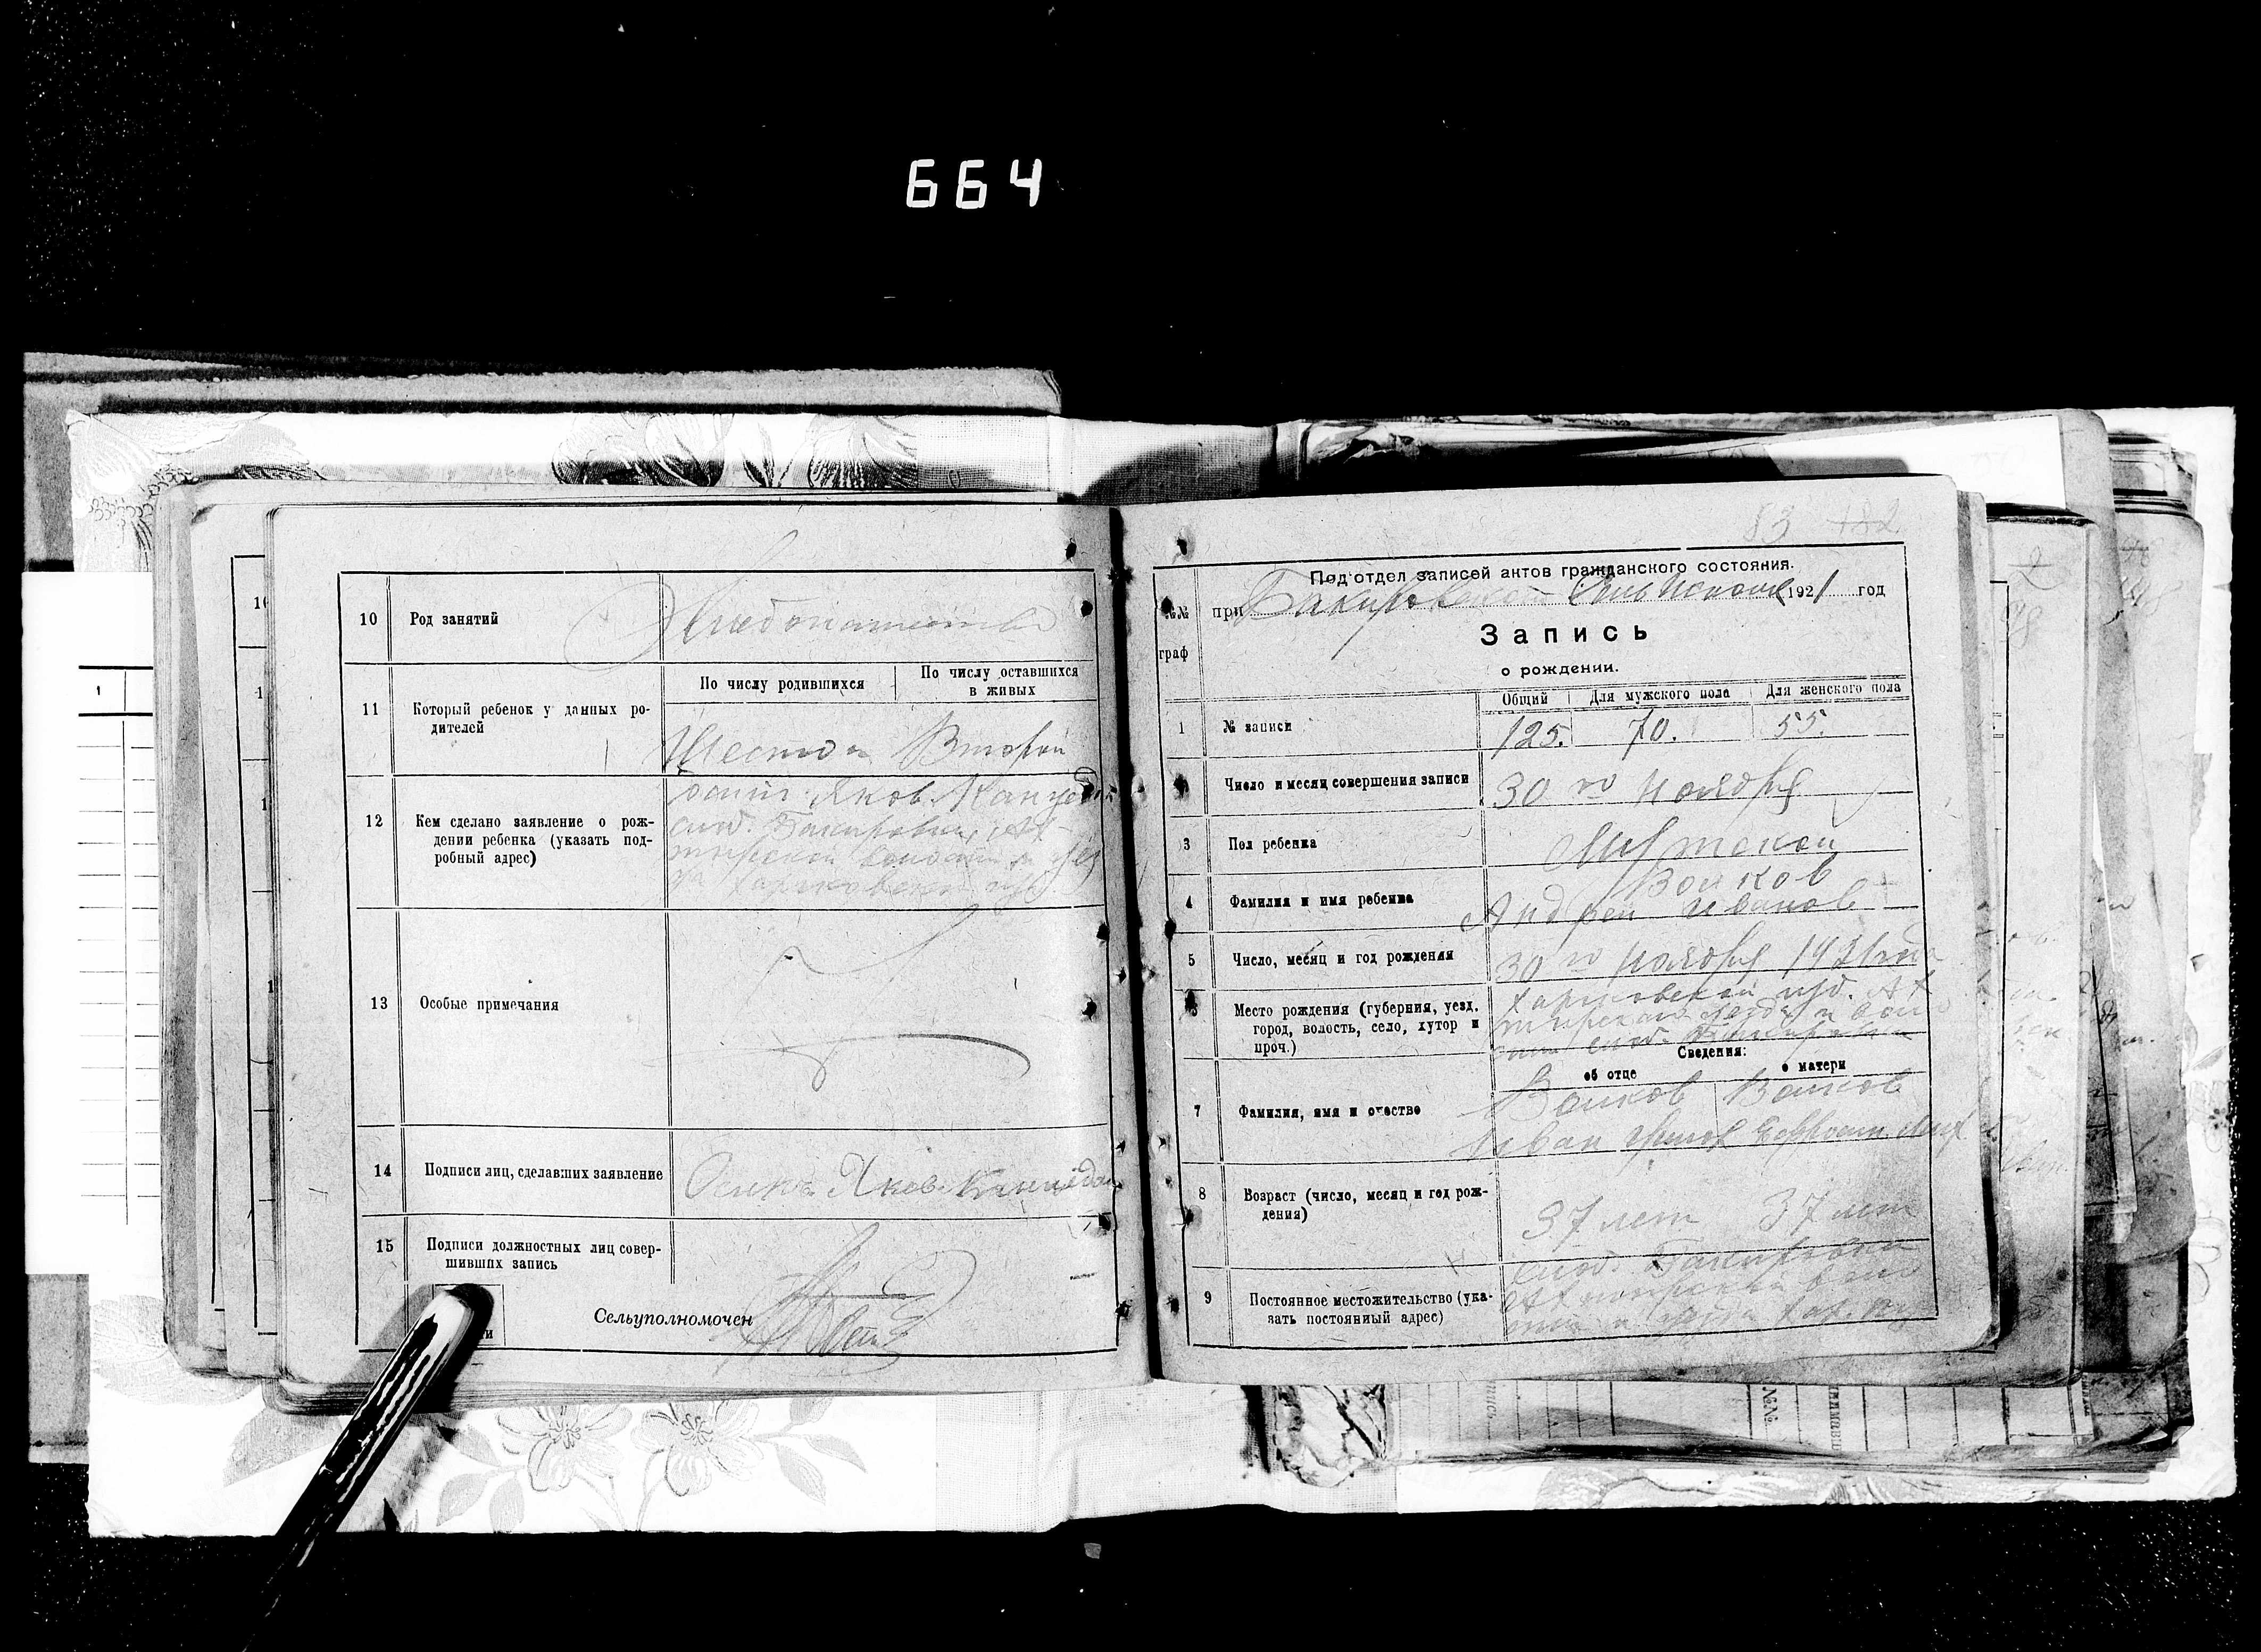 664
10 Род занятий Хлебопашество
11 Который ребенок у данных ро-
дителей
По числу родившихся
По числу оставшихся
в живых
Шестой Второй
12 Кем сделано заявление о рож-
дении ребенка (указать под-
робный адрес)
Яков.
слоб. Бакировки, Ах-
тырской волости и уез
да Харьковской губ.
13 Особые примечания
14 Подписи лиц, сделавших заявление
Яков.
15 Подписи должностных лиц совер-
шивших запись
Сельуполномочен
83 182
Подотдел записей актов гражданского состояния.
№№
граф
при Бакировском 1921 год
Запись
о рождении.
Общий Для мужского пола Для женского пола
1 № записи 125. 70. 55.
Число и месяц совершения записи 30 го ноября
3 Пол ребенка
4 Фамилия и имя ребенка
Волков
Андрей Иванов
5 Число, месяц и год рождения 30 го ноября 1921 года
Место рождения (губерния, уезд,
город, волость, село, хутор и
проч.)
Харьковской губ. Ах
тырского уезда и вол
слоб. Бакировка
Сведения:
об отце о матери
7 Фамилия, имя и отчество
Волков Волков
Иван
8 Возраст (число, месяц и год рож-
дения)
37 лет 37 лет
9 Постоянное местожительство (ука-
зать постоянный адрес)
слоб. Бакировка
Ахтырской вол